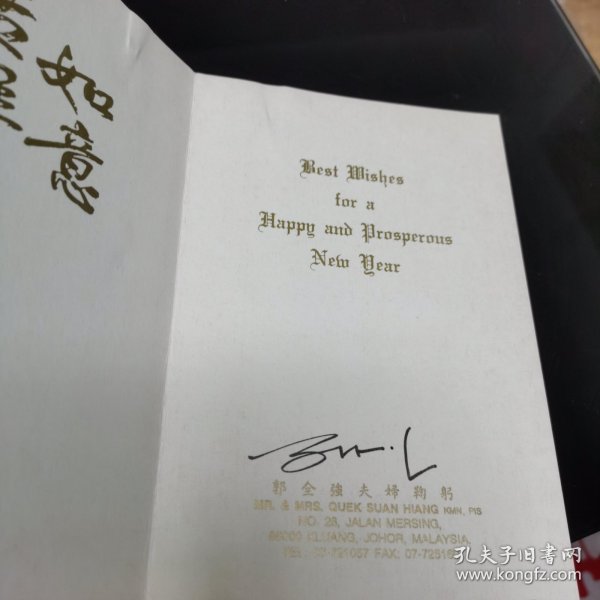 如意
Best Wishes
for a
Happy and Prosperous
New Year
郭全強夫婦鞠躬
MR. & MRS. QUEK SUAN HIANG KMN, PIS
NO. 28, JALAN MERSING,
86000 KLUANG, JOHOR, MALAYSIA.
TEL: 07-721057 FAX:
孔夫子旧书网
www.kongfz.com